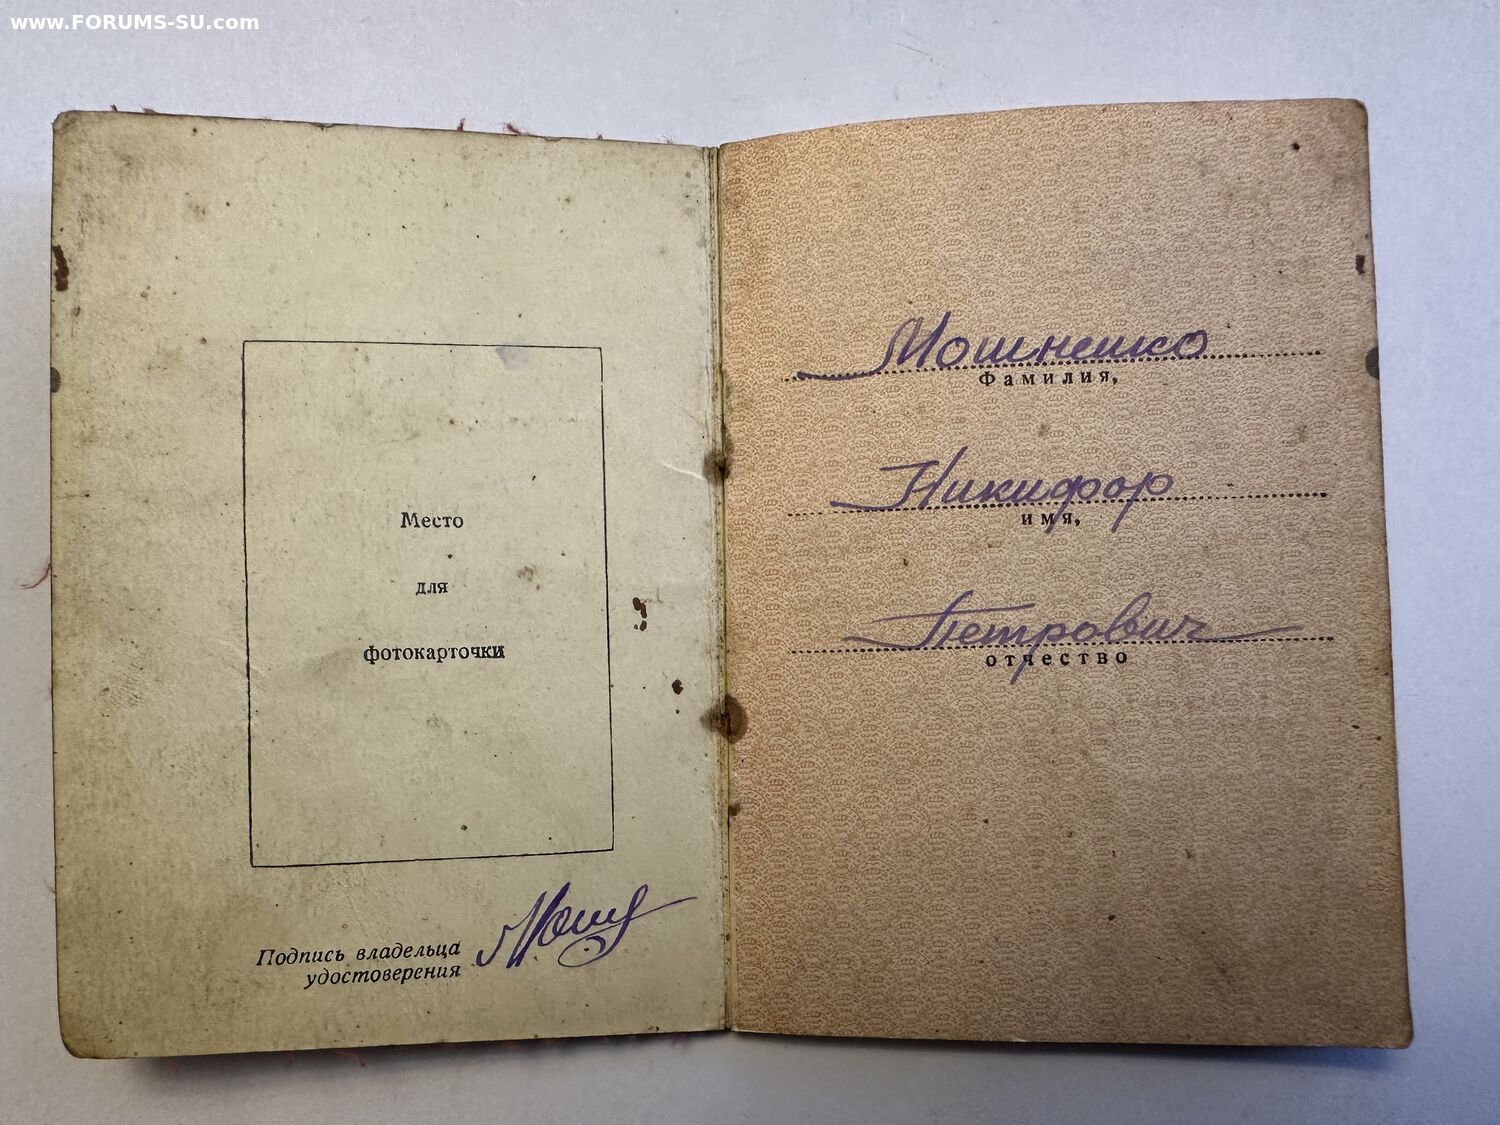 www.FORUMS-SU.com
Место
для
фотокарточки
Подпись владельца
удостоверения
Мош
Мошненко
Фамилия,
Никифор
имя,
Петрович
отчество